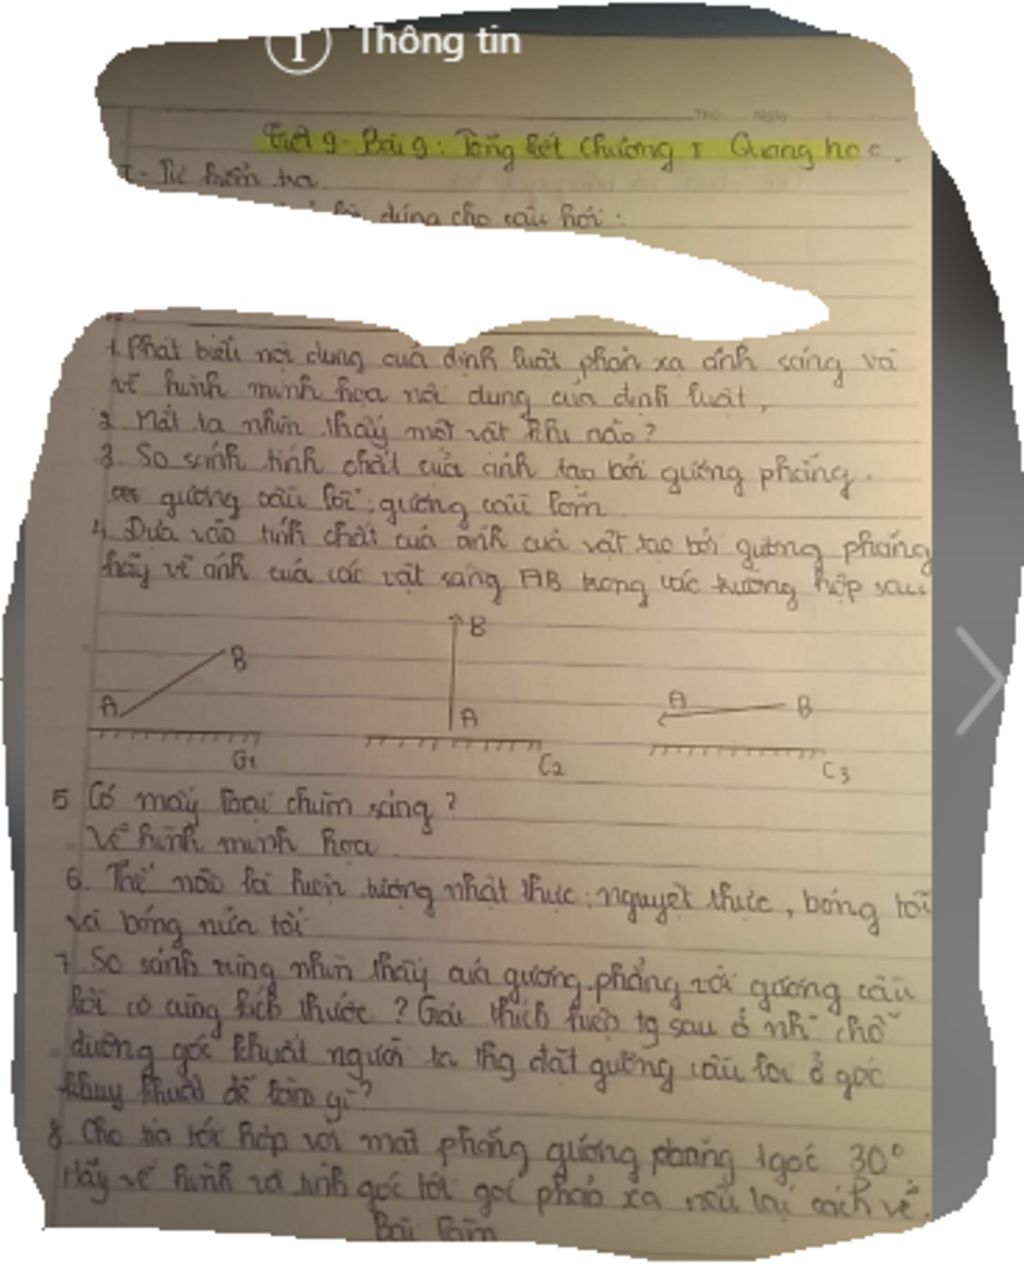 Thông tin
Thứ Ngày
Tiết 9 - Bài 9: Tổng kết Chương I Quang học.
I - Tự kiểm tra
dùng cho câu hỏi:
1. Phát biểu nội dung của định luật phản xạ ánh sáng và
vẽ hình minh họa nội dung của định luật,
2. Mắt ta nhìn thấy một vật khi nào?
3. So sánh tính chất của ảnh tạo bởi gương phẳng.
gương cầu lồi; gương cầu lõm
4. Dựa vào tính chất của ảnh của vật tạo bởi gương phẳng
hãy vẽ ảnh của các vật sáng AB trong các trường hợp sau
B
B
A
A
A
B
G1
C2
C3
5 Có mấy loại chùm sáng?
Vẽ hình minh họa
6. Thế nào là hiện tượng nhật thực; nguyệt thực, bóng tối
và bóng nửa tối
7. So sánh vùng nhìn thấy của gương phẳng với gương cầu
lồi có cùng kích thước? Giải thích hiện tg sau ở nh~ chỗ
đường góc khuất người ta thg đặt gương cầu lồi ở góc
khuy khuất để làm gì?
8 Cho tia tới hợp với mặt phẳng gương phẳng 1 góc 30°
Hãy vẽ hình và tính góc tới góc phản xạ nêu lại cách vẽ.
Bài làm